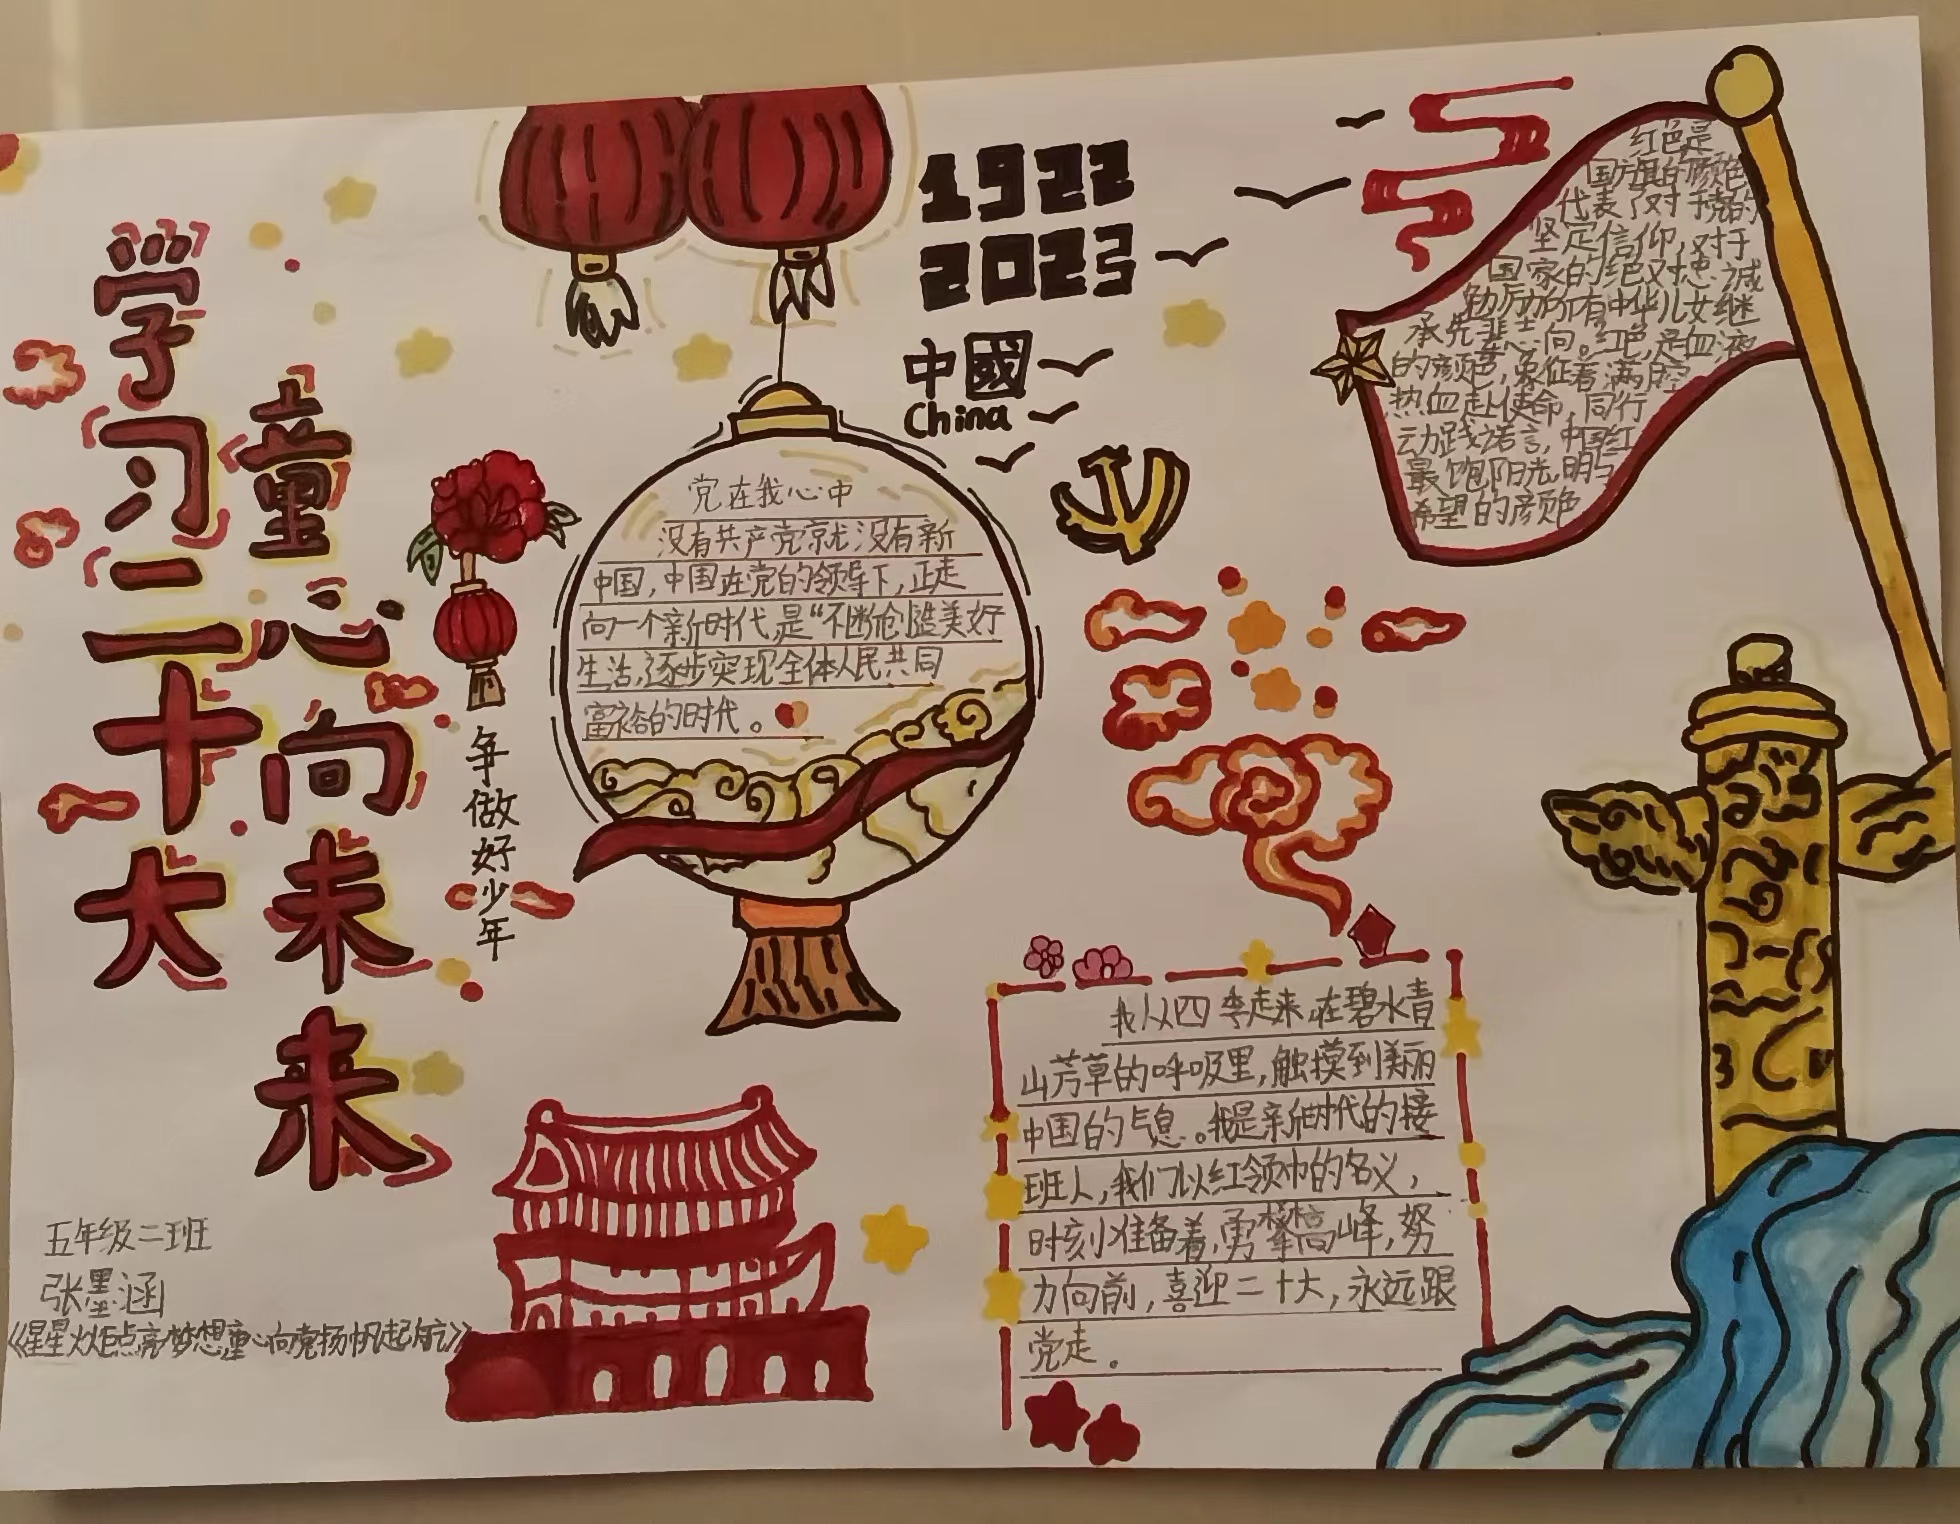 学习二十大
童心向未来
争做好少年
1922
2023
中國
China
党在我心中
没有共产党就没有新
中国,中国在党的领导下,正走
向一个新时代,是“不断创造美好
生活,逐步实现全体人民共同
富裕的时代。
红色是
国旗的颜色
代表了对于党的
坚定信仰,对于
国家的绝对忠诚
勉历所有中华儿女继
承先辈志向。红色,是血液
的颜色,象征着满腔
热血赴使命,同行
动践诺言,中国红
最饱阳光,明与
希望的颜色
我从四季走来,在碧水青
山芳草的呼吸里,触摸到美丽
中国的气息。我是新时代的接
班人,我们以红领巾的名义,
时刻准备着,勇攀高峰,努
力向前,喜迎二十大,永远跟
党走。
五年级二班
张墨涵
《星星火炬点亮梦想,童心向党扬帆起航》